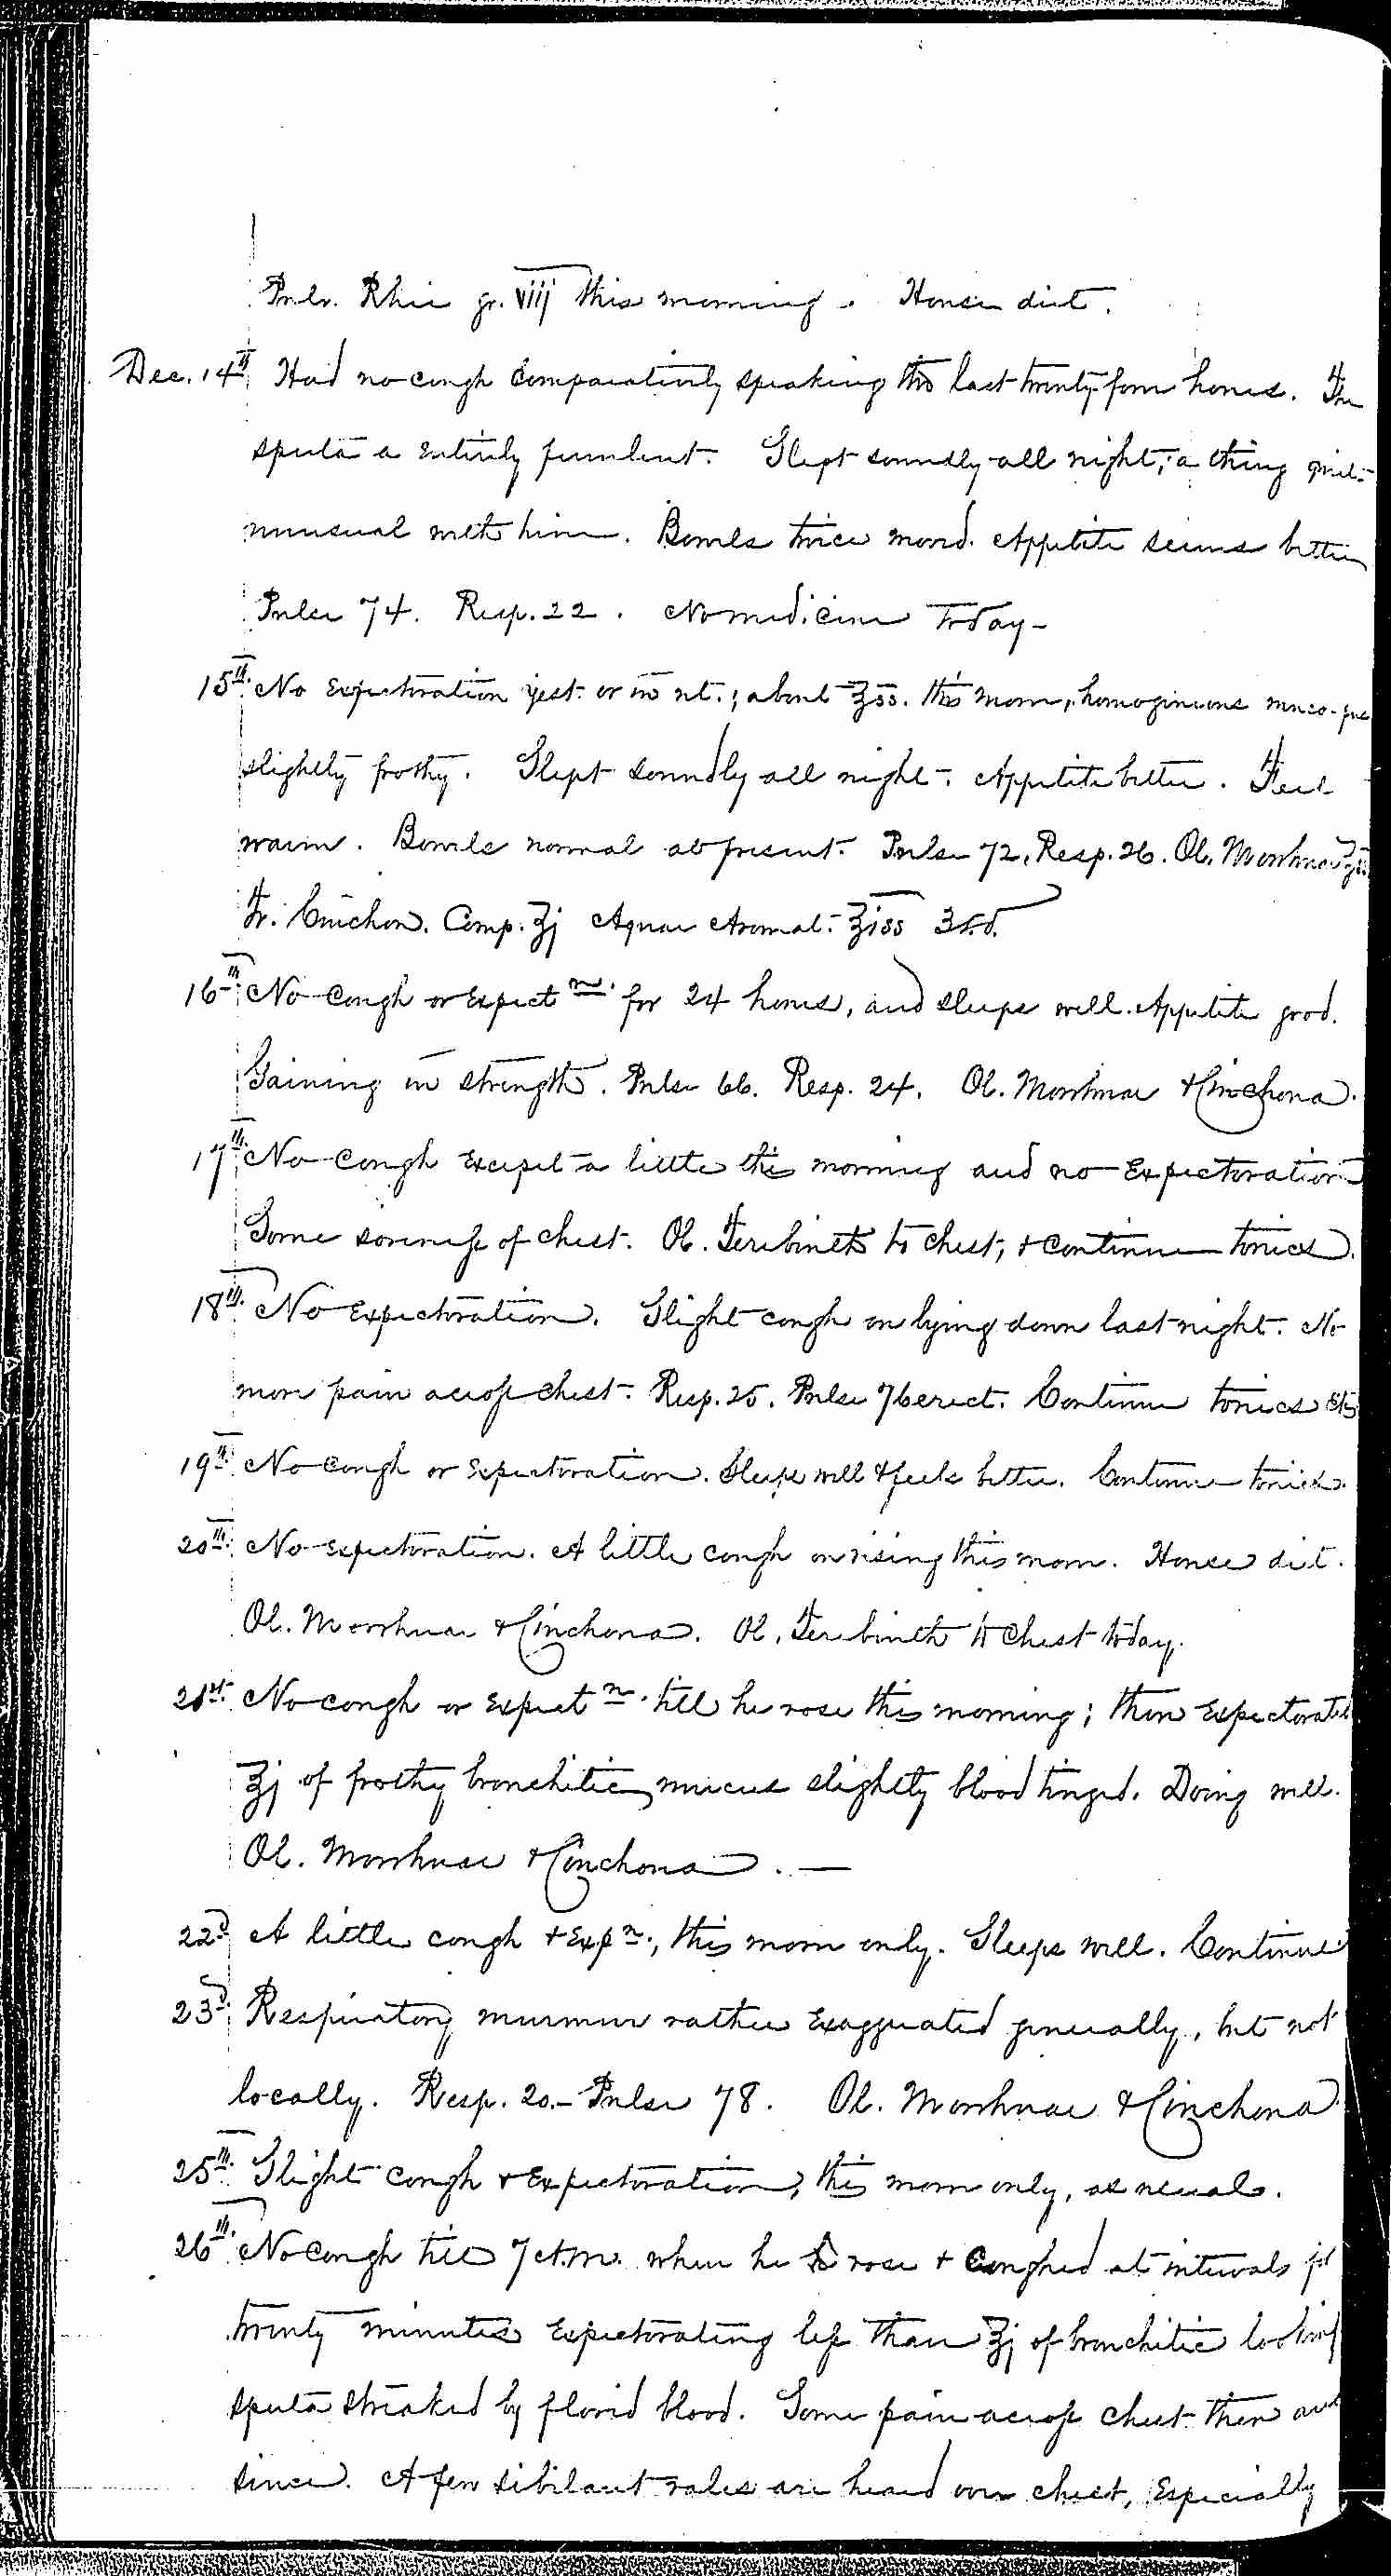 Pulv. Rhei gr. viij this morning. House diet.
Dec. 14th Had no cough comparatively speaking the last twenty-four hours. The
sputa a entirely purulent. Slept soundly all night, a thing quite
unusual with him. Bowels twice moved. Appetite seems better
Pulse 74. Resp. 22. No medicine today-
15th No expectoration yest. or in nt.; about ʒss. this morn, homogineous muco-pus
slightly frothy. Slept soundly all night. Appetite better. Feet
warm. Bowels normal at present. Pulse 72, Resp. 26. Ol. Morrhuae ℥ss
Tr. Cinchon. Comp. ʒj Aquae Aromat. ℥iss 3t.d.
16th No cough or expectn. for 24 hours, and sleeps well. Appetite good.
Gaining in strength. Pulse 66. Resp. 24. Ol. Morrhuae & Cinchona.
17th No cough except a little this morning and no expectoration
Some soreness of chest. Ol. Terebinth to chest, & continue tonics.
18th No expectoration. Slight cough on lying down last night. No
more pain across chest. Resp. 25. Pulse 76 erect. Continue tonics etc
19th No cough or expectoration. Sleeps well & feels better. Continue tonics.
20th No expectoration. A little cough on rising this morn. House diet.
Ol. Morrhuae & Cinchona. Ol. Terebinth to chest today.
21st No cough or expectn. till he rose this morning; then expectorated
℥j of frothy bronchitic mucus slightly blood tinged. Doing well.
Ol. Morrhuae & Cinchona. —
22d A little cough & expn., this morn only. Sleeps well. Continue
23d Respiratory murmur rather exaggerated generally, but not
locally. Resp. 20.- Pulse 78. Ol. Morrhuae & Cinchona
25th Slight cough & expectoration, this morn only, as usual.
26th No cough till 7 A.M. when he rose & coughed at intervals for
twenty minutes expectorating less than ℥j of bronchitic looking
sputa streaked by florid blood. Some pain across chest then and
since. A few sibilant rales are heard over chest, especially